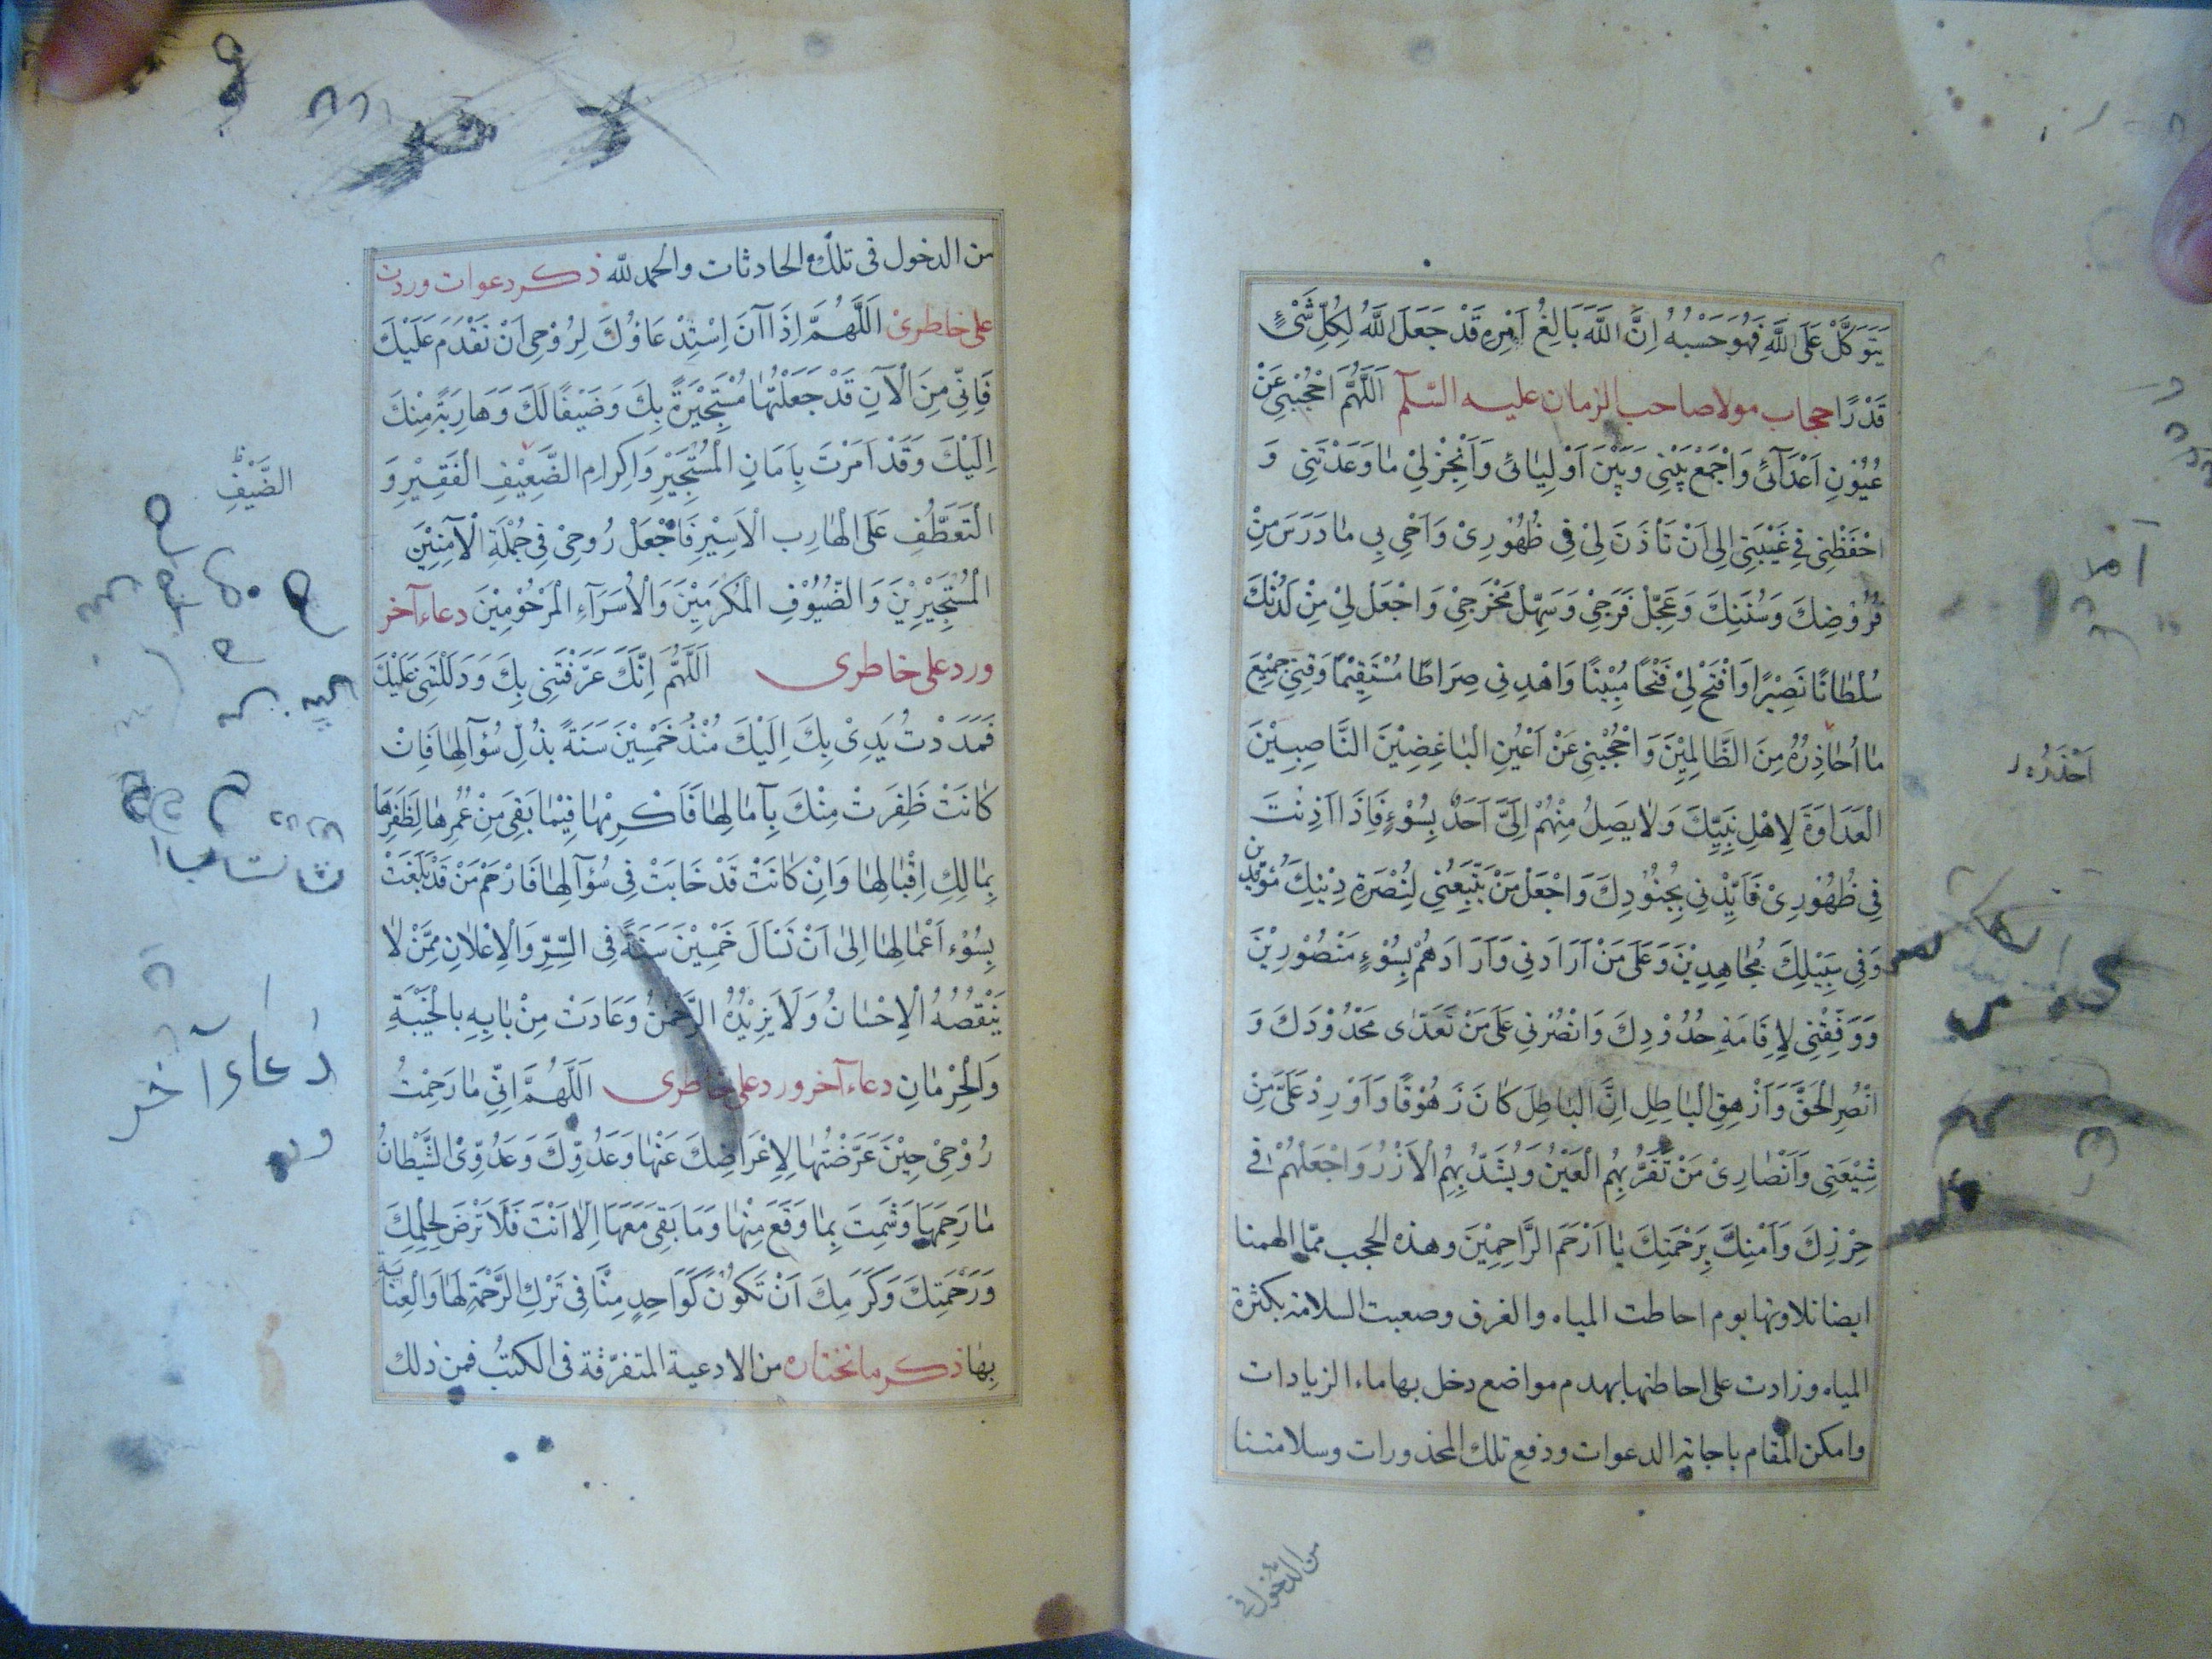 يَتَوَكَّلْ عَلَى اللَّهِ فَهُوَ حَسْبُهُ اِنَّ اللَّهَ بَالِغُ اَمْرِهِ قَدْ جَعَلَ اللَّهُ لِكُلِّ شَيْءٍ
قَدْرًا حجاب مولانا صاحب الزمان عليه السّلم اَللَّهُمَّ احْجُبْنِي عَنْ
عُيُونِ اَعْدَآئِيْ وَاجْمَعْ بَيْنِي وَبَيْنَ اَوْلِيَائِيْ وَاَنْجِزْ لِيْ مَا وَعَدْتَنِي وَ
احْفَظْنِي فِي غَيْبَتِي اِلى اَنْ تَأْذَنَ لِيْ فِي ظُهُوْرِيْ وَاَحْيِ بِي مَا دَرَسَ مِنْ
فُرُوْضِكَ وَسُنَنِكَ وَعَجِّلْ فَرَجِيْ وَسَهِّلْ مَخْرَجِيْ وَاجْعَلْ لِيْ مِنْ لَدُنْكَ
سُلْطَانًا نَصِيْرًا وَافْتَحْ لِيْ فَتْحًا مُبِيْنًا وَاهْدِنِي صِرَاطًا مُسْتَقِيْمًا وَقِنِيْ جَمِيْعَ
مَا اُحَاذِرُهُ مِنَ الظَّالِمِيْنَ وَاحْجُبْنِي عَنْ اَعْيُنِ الْبَاغِضِيْنَ النَّاصِبِيْنَ
اَحْذَرُه
الْعَدَاوَةَ لِاَهْلِ نَبِيِّكَ وَلَا يَصِلُ مِنْهُمْ اِلَيَّ اَحَدٌ بِسُوْءٍ فَاِذَا اَذِنْتَ
فِي ظُهُوْرِيْ فَاَيِّدْنِي بِجُنُوْدِكَ وَاجْعَلْ مَنْ يَتْبَعُنِي لِنُصْرَةِ دِيْنِكَ مُؤَيَّدِيْنَ
وَفِي سَبِيْلِكَ مُجَاهِدِيْنَ وَعَلَى مَنْ اَرَادَنِي وَاَرَادَهُمْ بِسُوْءٍ مَنْصُوْرِيْنَ
وَوَفِّقْنِي لِاِقَامَةِ حُدُوْدِكَ وَانْصُرْنِي عَلَى مَنْ تَعَدّى مَحْدُوْدَكَ وَ
انْصُرِ الْحَقَّ وَاَزْهِقِ الْبَاطِلِ اِنَّ الْبَاطِلَ كَانَ زَهُوْقًا وَاَوْرِدْ عَلَيَّ مِنْ
شِيْعَتِي وَاَنْصَارِيْ مَنْ تَقَرُّ بِهِمُ الْعَيْنُ وَيُشَدُّ بِهِمُ الْاَزْرُ وَاجْعَلْهُمْ فِي
حِرْزِكَ وَاَمْنِكَ بِرَحْمَتِكَ يَا اَرْحَمَ الرَّاحِمِيْنَ وهذه الحجب ممّا الهمنا
ايضا تلاوتها يوم احاطت المياه والغرق وصعبت السلامة بكثرة
المياه وزادت على احاطتها بهدم مواضع دخل بها ماء الزيادات
وامكن المقام باجابة الدعوات ودفع تلك المحذورات وسلامتنا
من الدّخول في
من الدخول في تلك الحادثات والحمد لله ذكر دعوات وردت
على خاطريْ اَللَّهُمَّ اِذَا آنَ اِسْتِدْعَاؤُكَ لِرُوْحِي اَنْ تَقْدَمَ عَلَيْكَ
فَاِنِّي مِنَ الْآنِ قَدْ جَعَلْتُهَا مُسْتَجِيْرَةً بِكَ وَضَيْفًا لَكَ وَهَارِبَةً مِنْكَ
اِلَيْكَ وَقَدْ اَمَرْتَ بِاَمَانِ الْمُسْتَجِيْرِ وَاِكرامِ الضَّعِيْفِ الْفَقِيْرِ وَ
الضَّيْفِ
التَّعَطُّفِ عَلَى الْهَارِبِ الْاَسِيْرِ فَاجْعَلْ رُوحِيْ فِي جُمْلَةِ الْآمِنِيْنَ
الْمُسْتَجِيْرِيْنَ وَالضُّيُوْفِ الْمُكْرَمِيْنَ وَالْاُسَرَآءِ الْمَرْحُوْمِيْنَ دعاء آخر
ورد على خاطرى اَللَّهُمَّ اِنَّكَ عَرَّفْتَنِي بِكَ وَدَلَلْتَنِيْ عَلَيْكَ
فَمَدَدْتُ يَدِيْ بِكَ اِلَيْكَ مُنْذُ خَمْسِيْنَ سَنَةً بِذُلِّ سُؤَآلِهَا فَاِنْ
كَانَتْ ظَفِرَتْ مِنْكَ بِآمَالِهَا فَاَكْرِمْهَا فِيْمَا بَقِيَ مِنْ عُمُرِهَا لِظَفَرِهَا
بِمَالِكِ اِقْبَالِهَا وَاِنْ كَانَتْ قَدْ خَابَتْ فِي سُؤَآلِهَا فَارْحَمْ مَنْ قَدْ بَلَغَتْ
بِسُوْءِ اَعْمَالِهَا اِلىٰ اَنْ تَسْأَلَ خَمْسِيْنَ سَنَةً فِي السِّرِّ وَالْاِعْلَانِ مِمَّنْ لَا
يَنْقُصُهُ الْاِحْسَانُ وَلَا يَزِيْدُهُ الْحِرْمَنُ وَعَادَتْ مِنْ بَابِهِ بِالْخَيْبَةِ
وَالْحِرْمَانِ دعاء آخر ورد على خاطرى اَللَّهُمَّ اِنِّي مَا رَحِمْتُ
رُوْحِيْ حِيْنَ عَرَّضْتُهَا لِاِعْرَاضِكَ عَنْهَا وَعَدُوُّكَ وَعَدُوِّيْ الشَّيْطَانُ
مَا رَحِمَهَا وَشَمِتَ بِمَا وَقَعَ مِنْهَا وَمَا بَقِيَ مَعَهَا اِلَّا اَنْتَ فَلَا تَرْضَ لِحِلْمِكَ
وَرَحْمَتِكَ وَكَرَمِكَ اَنْ تَكُوْنَ كَوَاحِدٍ مِنَّا فِي تَرْكِ الرَّحْمَةِ لَهَا وَالْعِنَايَةِ
بِهَا ذكر ما نختاره من الادعية المتفرّقة فى الكتب فمن ذلك
دعاء آخر